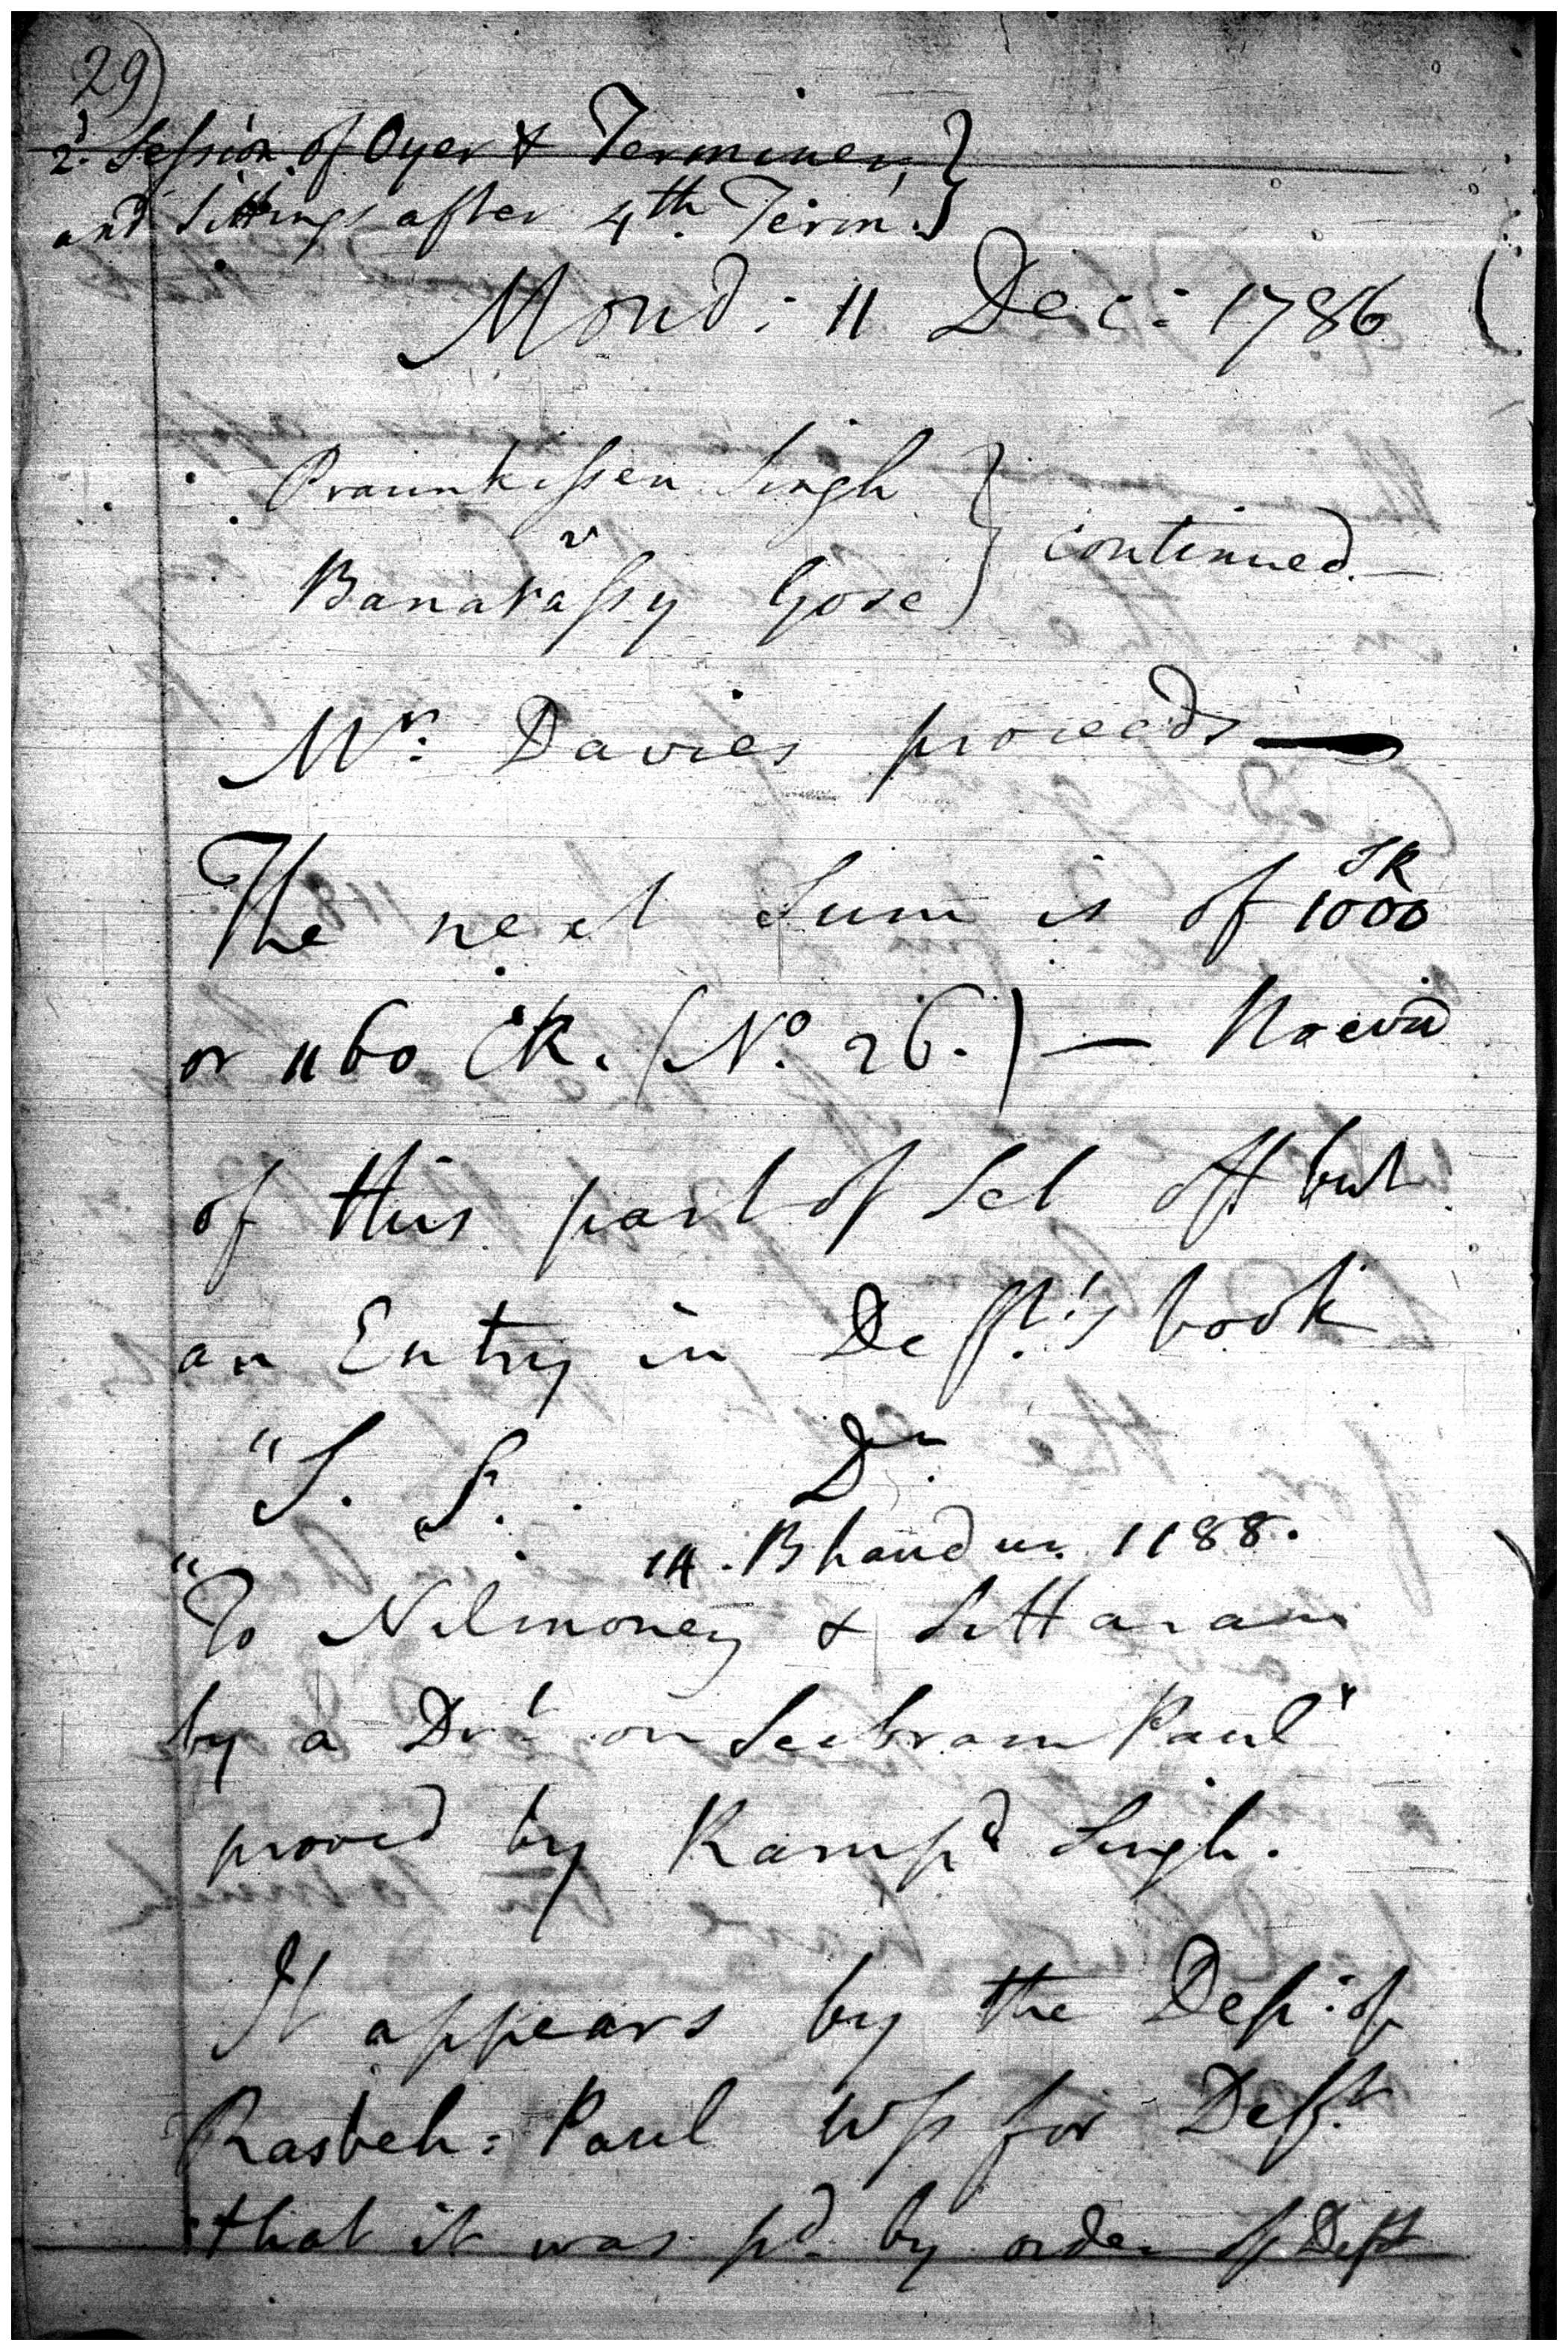 29)
2d. Session of Oyer & Terminer,
and Sittings after 4th. Term.
Mond: 11 Dec: 1786
Praunkissen Singh
v
Banarassy Gose
continued.—
Mr. Davies proceeds —
The next Sum is of 1000 SR
or 1160 CR. (No. 26.) — No evid
of this part of Set off but
an Entry in Defft.'s book
"S. S. Dr.
14. Bhaudur. 1188.
"To Nilmoney & Sittaram
by a Drt on Seebram Paul"
proved by Rampd Singh.
It appears by the Dep: of
Rasbeh: Paul Wss for Defft.
that it was pd. by order of Defft